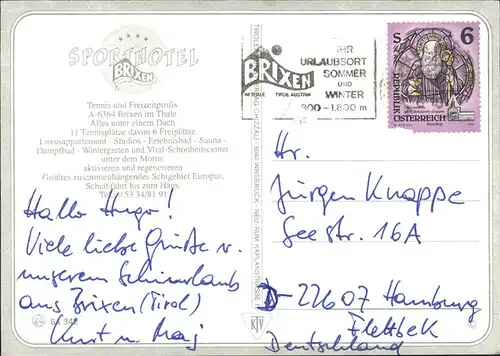 SPORTHOTEL
BRIXEN
Tennis und Freizeitprofis
A-6364 Brixen im Thale
Alles unter einem Dach
11 Tennisplätze davon 6 Freiplätze
Luxusappartement - Studios - Erlebnisbad - Sauna -
Dampfbad - Wintergarten und Vital-Schönheitscenter
unter dem Motto:
aktivieren und regenerieren
Größtes zusammenhängendes Schigebiet Europas,
Schiabfahrt bis zum Haus.
Hallo Hugo!
Viele liebe Grüße v.
unserem Schiurlaub
aus Brixen (Tirol)
Kurt u.
BRIXEN
IM THALE TIROL AUSTRIA
IHR
URLAUBSORT
SOMMER
UND
WINTER
800 - 1.800 m
S 6
REPUBLIK
ÖSTERREICH
Hr.
Jürgen Knappe
Seestr. 16A
D-22607 Hamburg
Flottbek
Deutschland
KTV